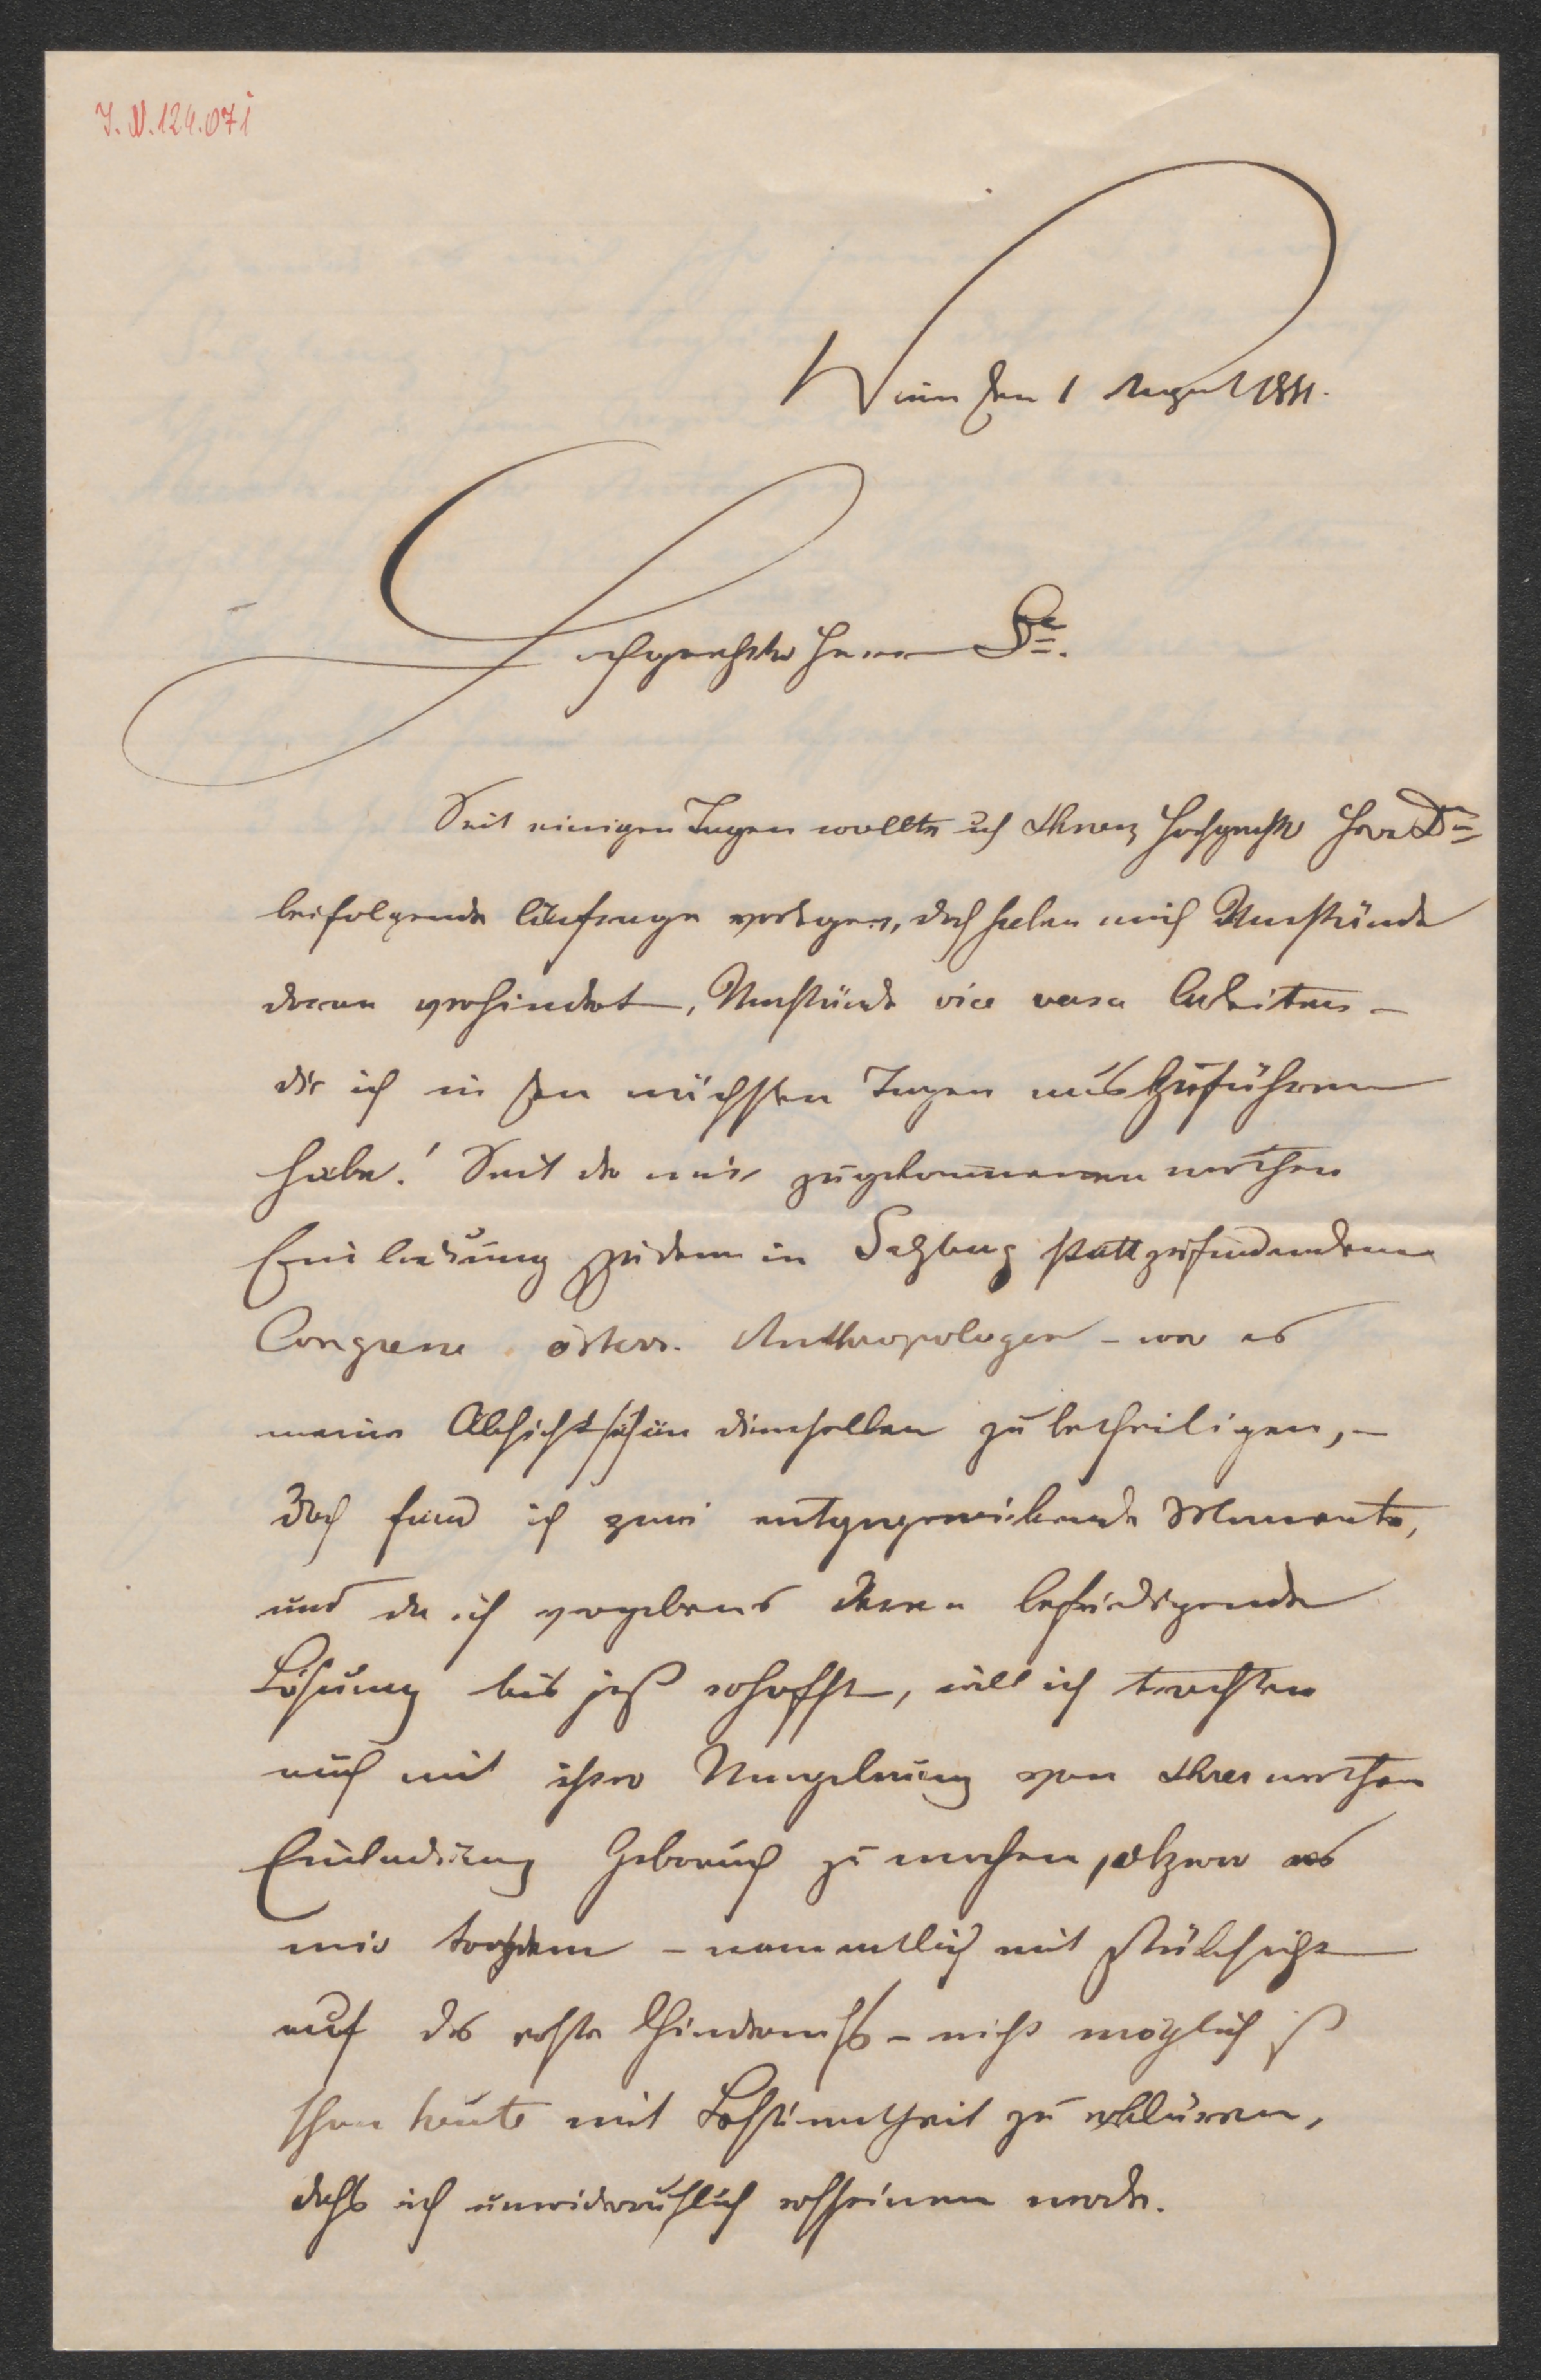 I. N. 124.071
Wien den 1 August 1881.
Hochgeehrter Herr Dr.
Seit einigen Tagen wollte ich Ihnen, hochgeehrter Herr Dr
beifolgende Anfrage vorlegen, doch haben mich Umstände
daran verhindert, Umstände vice versa Arbeiten –
die ich in den nächsten Tagen auszuführen
habe! Seit der mir zugekommenen werthen
Einladung zu dem in Salzburg stattzufindenden
Congresse österr. Anthropologen – war es
meine Absicht sich an demselben zu betheiligen, –
doch fand ich zwei entgegenwirkende Momente,
und da ich vergebens deren befriedigende
Lösung bis jetzt erhoffte, will ich trachten
auch mit ihrer Umgehung von Ihrer werthen
Einladung Gebrauch zu machen, obzwar es
mir trotzdem – namentlich mit Rücksicht
auf das erste Hinderniß – nicht möglich ist
schon heute mit Bestimmtheit zu erklären,
daß ich unwiderruflich erscheinen werde.